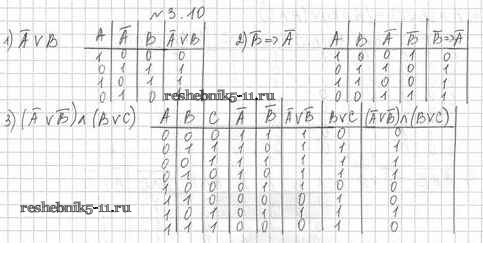 № 3.10
1) A̅ ∨ B
A A̅ B A̅∨B
1 0 0 0
0 1 1 1
1 0 1 1
0 1 0
2) B̅ => A̅
A B A̅ B̅ B̅=>A̅
1 0 0 1 0
0 1 1 0 1
1 1 0 0 1
0 0 1 1 1
reshebnik5-11.ru
3) (A̅ ∨ B̅) ∧ (B∨C)
A B C A̅ B̅ A̅∨B̅ B∨C (A̅∨B̅)∧(B∨C)
0 0 0 1 1 1 0 0
0 1 1 1 0 1 1 1
0 0 1 1 1 1 1 1
0 1 0 1 0 1 1 1
1 0 0 0 1 1 0 0
1 1 0 0 0 0 1 0
1 0 1 0 1 1 1 1
1 1 1 0 0 0 1 0
reshebnik5-11.ru